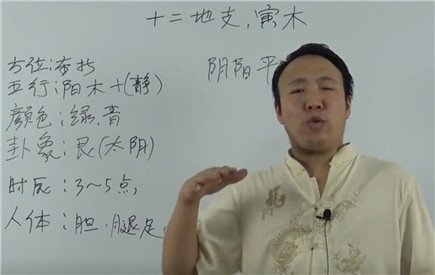 十二地支,寅木
方位:东北
阴阳平
五行:阳木+(静)
颜色:绿.青
卦象:艮(太阴)
时辰:3~5点,
人体:胆.腿足.